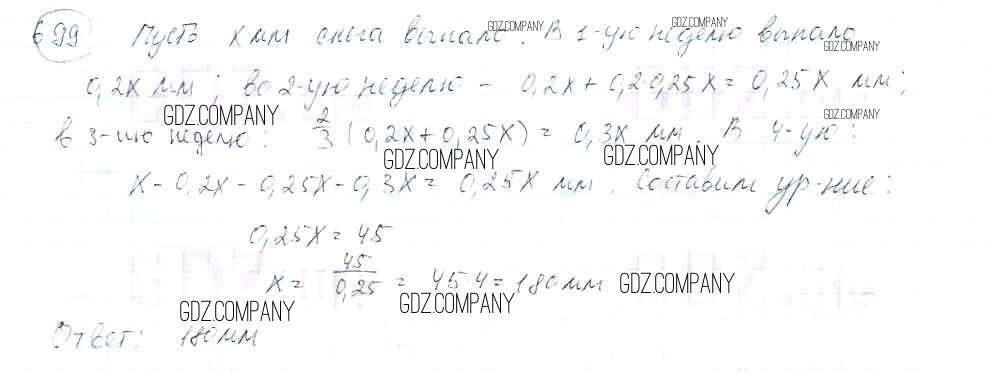 699 Пусть x мм снега выпало. В 1-ую неделю выпало
0,2x мм; во 2-ую неделю - 0,2x + 0,2·0,25x = 0,25x мм;
в 3-ию неделю: 2/3 (0,2x + 0,25x) = 0,3x мм. В 4-ую:
x - 0,2x - 0,25x - 0,3x = 0,25x мм. Составим ур-ние:
0,25x = 45
x = 45/0,25 = 45·4 = 180 мм
Ответ: 180 мм
GDZ.COMPANY
GDZ.COMPANY
GDZ.COMPANY
GDZ.COMPANY
GDZ.COMPANY
GDZ.COMPANY
GDZ.COMPANY
GDZ.COMPANY
GDZ.COMPANY
GDZ.COMPANY